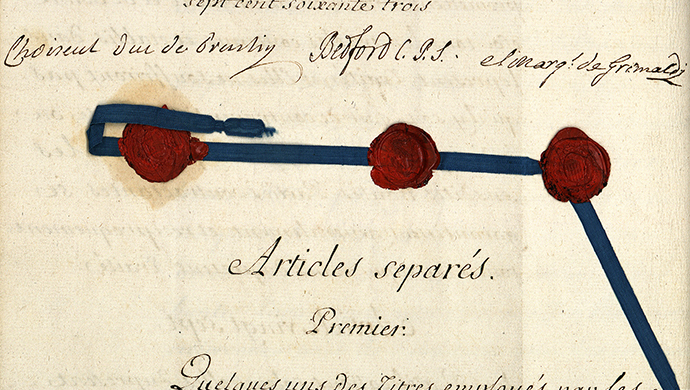 sept cent soixante, trois
Choiseul Duc de Praslin Bedford C.P.S. el Marq.s de Grimaldi
Articles separés.
Premier.
Quelques uns des Titres employés par les